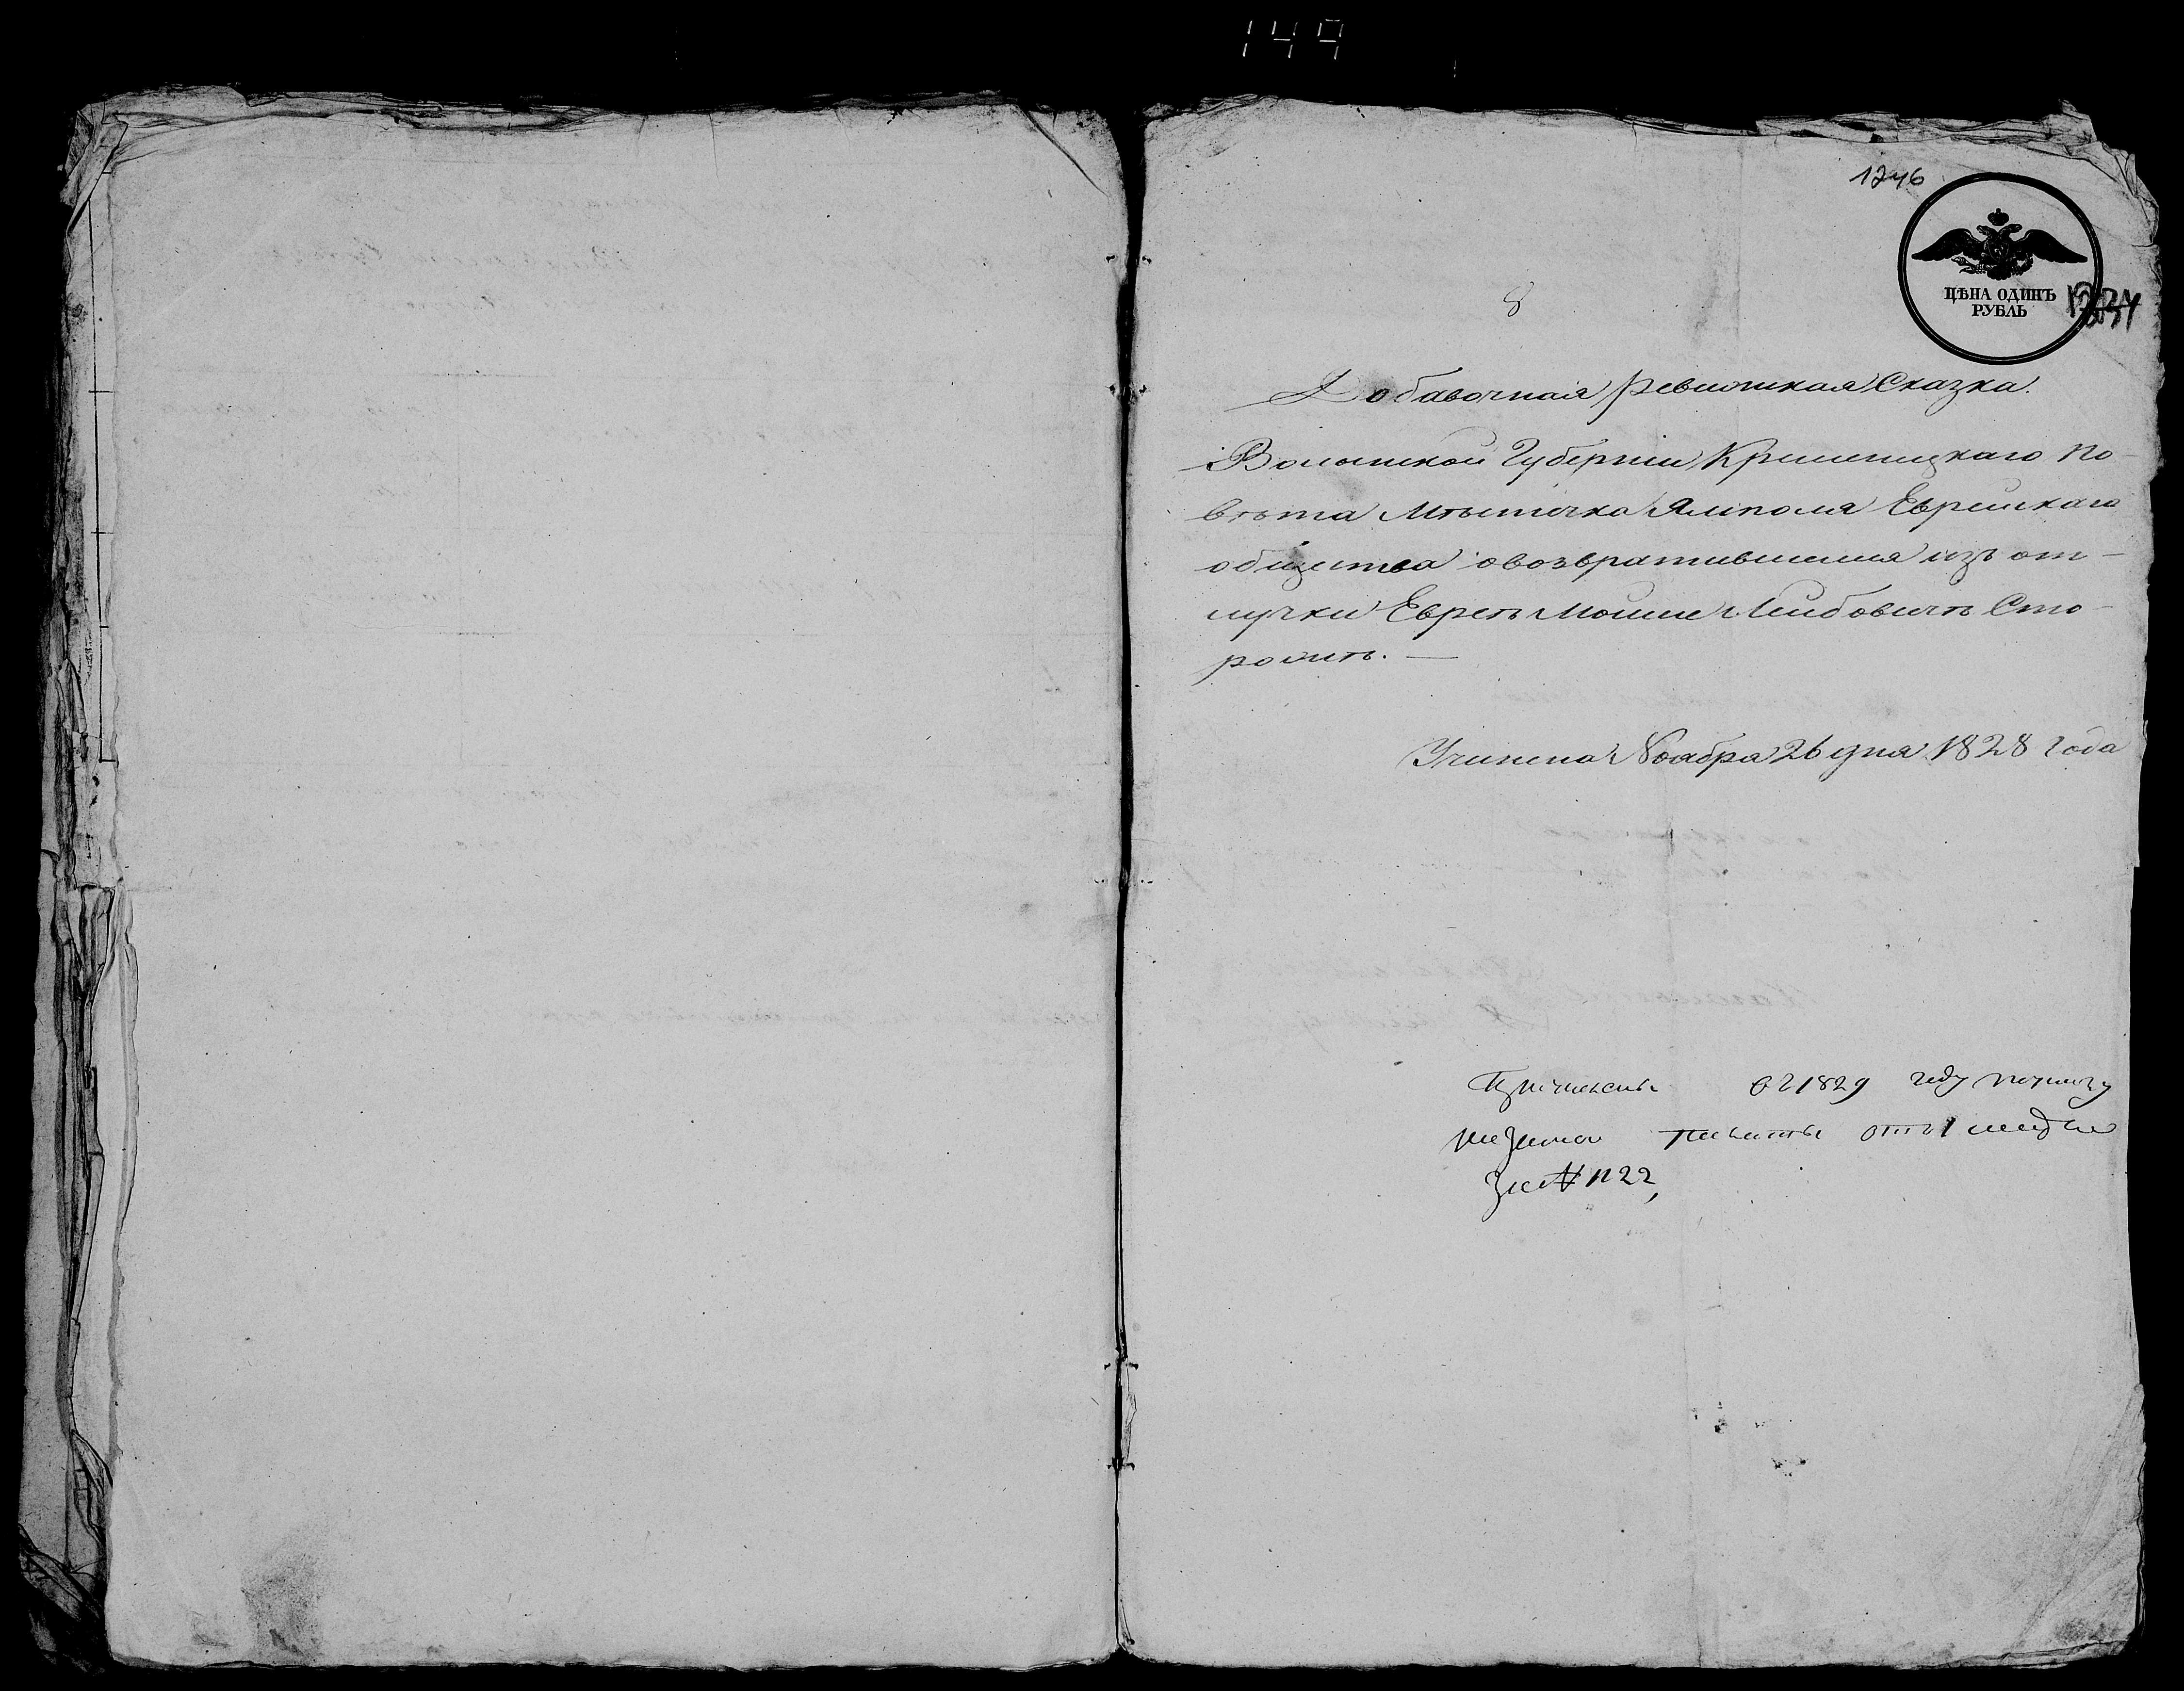 149
1246
ЦѢНА ОДИНЪ
РУБЛЬ
8
Добавочная Ревизская Сказка.
Волынской Губерніи Кременецкаго По-
вѣта Мѣстечка Ямполя Еврейскаго
общества овозвратившемся изъ от-
лучки Евреѣ Мошие Лейбовичѣ Сто-
роитъ. —
Учинена Ноября 26 дня 1828 Года
1829 году
№ 1122,